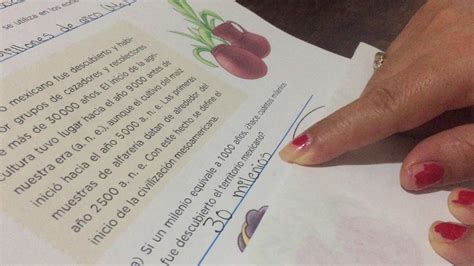 se utiliza en los
millones de años
mexicano fue descubierto y habi-
or grupos de cazadores y recolectores
e más de 30 000 años. El inicio de la agri-
cultura tuvo lugar hacia el año 9000 antes de
nuestra era (a. n. e.), aunque el cultivo del maíz
inició hacia el año 5000 a. n. e. Las primeras
muestras de alfarería datan de alrededor del
año 2500 a. n. e. Con este hecho se define el
inicio de la civilización mesoamericana.
a) Si un milenio equivale a 1000 años, ¿hace cuántos milenios
fue descubierto el territorio mexicano?
30 milenios